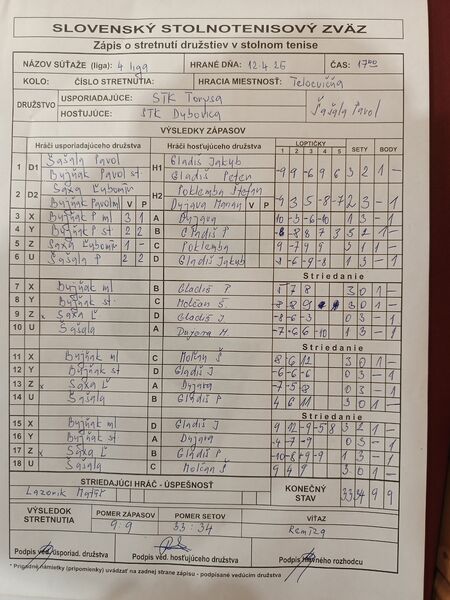 SLOVENSKÝ STOLNOTENISOVÝ ZVÄZ
Zápis o stretnutí družstiev v stolnom tenise
NÁZOV SÚŤAŽE (liga): 4 liga HRANÉ DŇA: 12.4.25 ČAS: 17:00
KOLO: ČÍSLO STRETNUTIA: HRACIA MIESTNOSŤ: Telocvičňa
DRUŽSTVO USPORIADAJÚCE: STK Torysa
HOSŤUJÚCE: STK Dubovica
Šašala Pavol
VÝSLEDKY ZÁPASOV
Hráči usporiadajúceho družstva Hráči hosťujúceho družstva LOPTIČKY SETY BODY
1 2 3 4 5
1 D1 Šašala Pavol H1 Gladiš Jakub -9 9 -6 9 6 3 2 1 -
Bujňák Pavol st Gladiš Peter
2 D2 Saxa Ľubomír H2 Poklemba Štefan
V P V P
3 X Bujňák P ml 3 1 A Dujava 10 -3 -6 -10 1 3 - 1
4 Y Bujňák P st 2 2 B Gladiš P
5 Z Saxa Ľubomír 1 - C Poklemba 9 -7 9 9 3 1 1 -
6 U Šašala P 2 2 D Gladiš Jakub 1 3 - 1
Striedanie
7 X Bujňák ml B Gladiš P 5 7 8 3 0 1 -
8 Y Bujňák st C Molčan Š 3 0 1 -
9 Z x Saxa Ľ D Gladiš J -8 -6 -3 0 3 - 1
10 U Šašala A Dujava M. -7 -6 6 -10 1 3 - 1
Striedanie
11 X Bujňák ml C Molčan Š 8 6 12 3 0 1 -
12 Y Bujňák st D Gladiš J
13 Z x Saxa Ľ A Dujava -7 -5 -8 0 3 - 1
14 U Šašala B Gladiš P 4 6 11 3 0 1 -
Striedanie
15 X Bujňák ml D Gladiš J 9 12 -9 -5 8 3 2 1 -
16 Y Bujňák st A Dujava -4 -7 -9 0 3 - 1
17 Z x Saxa Ľ B Gladiš P -10 -8 +9 -9 1 3 - 1
18 U Šašala C Molčan Š 9 4 9 3 0 1 -
STRIEDAJÚCI HRÁČ - ÚSPEŠNOSŤ KONEČNÝ STAV 33 34 9 9
Lazorik
VÝSLEDOK STRETNUTIA POMER ZÁPASOV POMER SETOV VÍŤAZ
9:9 33:34 Remíza
Podpis ved. usporiad. družstva Podpis ved. hosťujúceho družstva Podpis hlavného rozhodcu
* Prípadné námietky (pripomienky) uvádzať na zadnej strane zápisu - podpísané vedúcim družstva